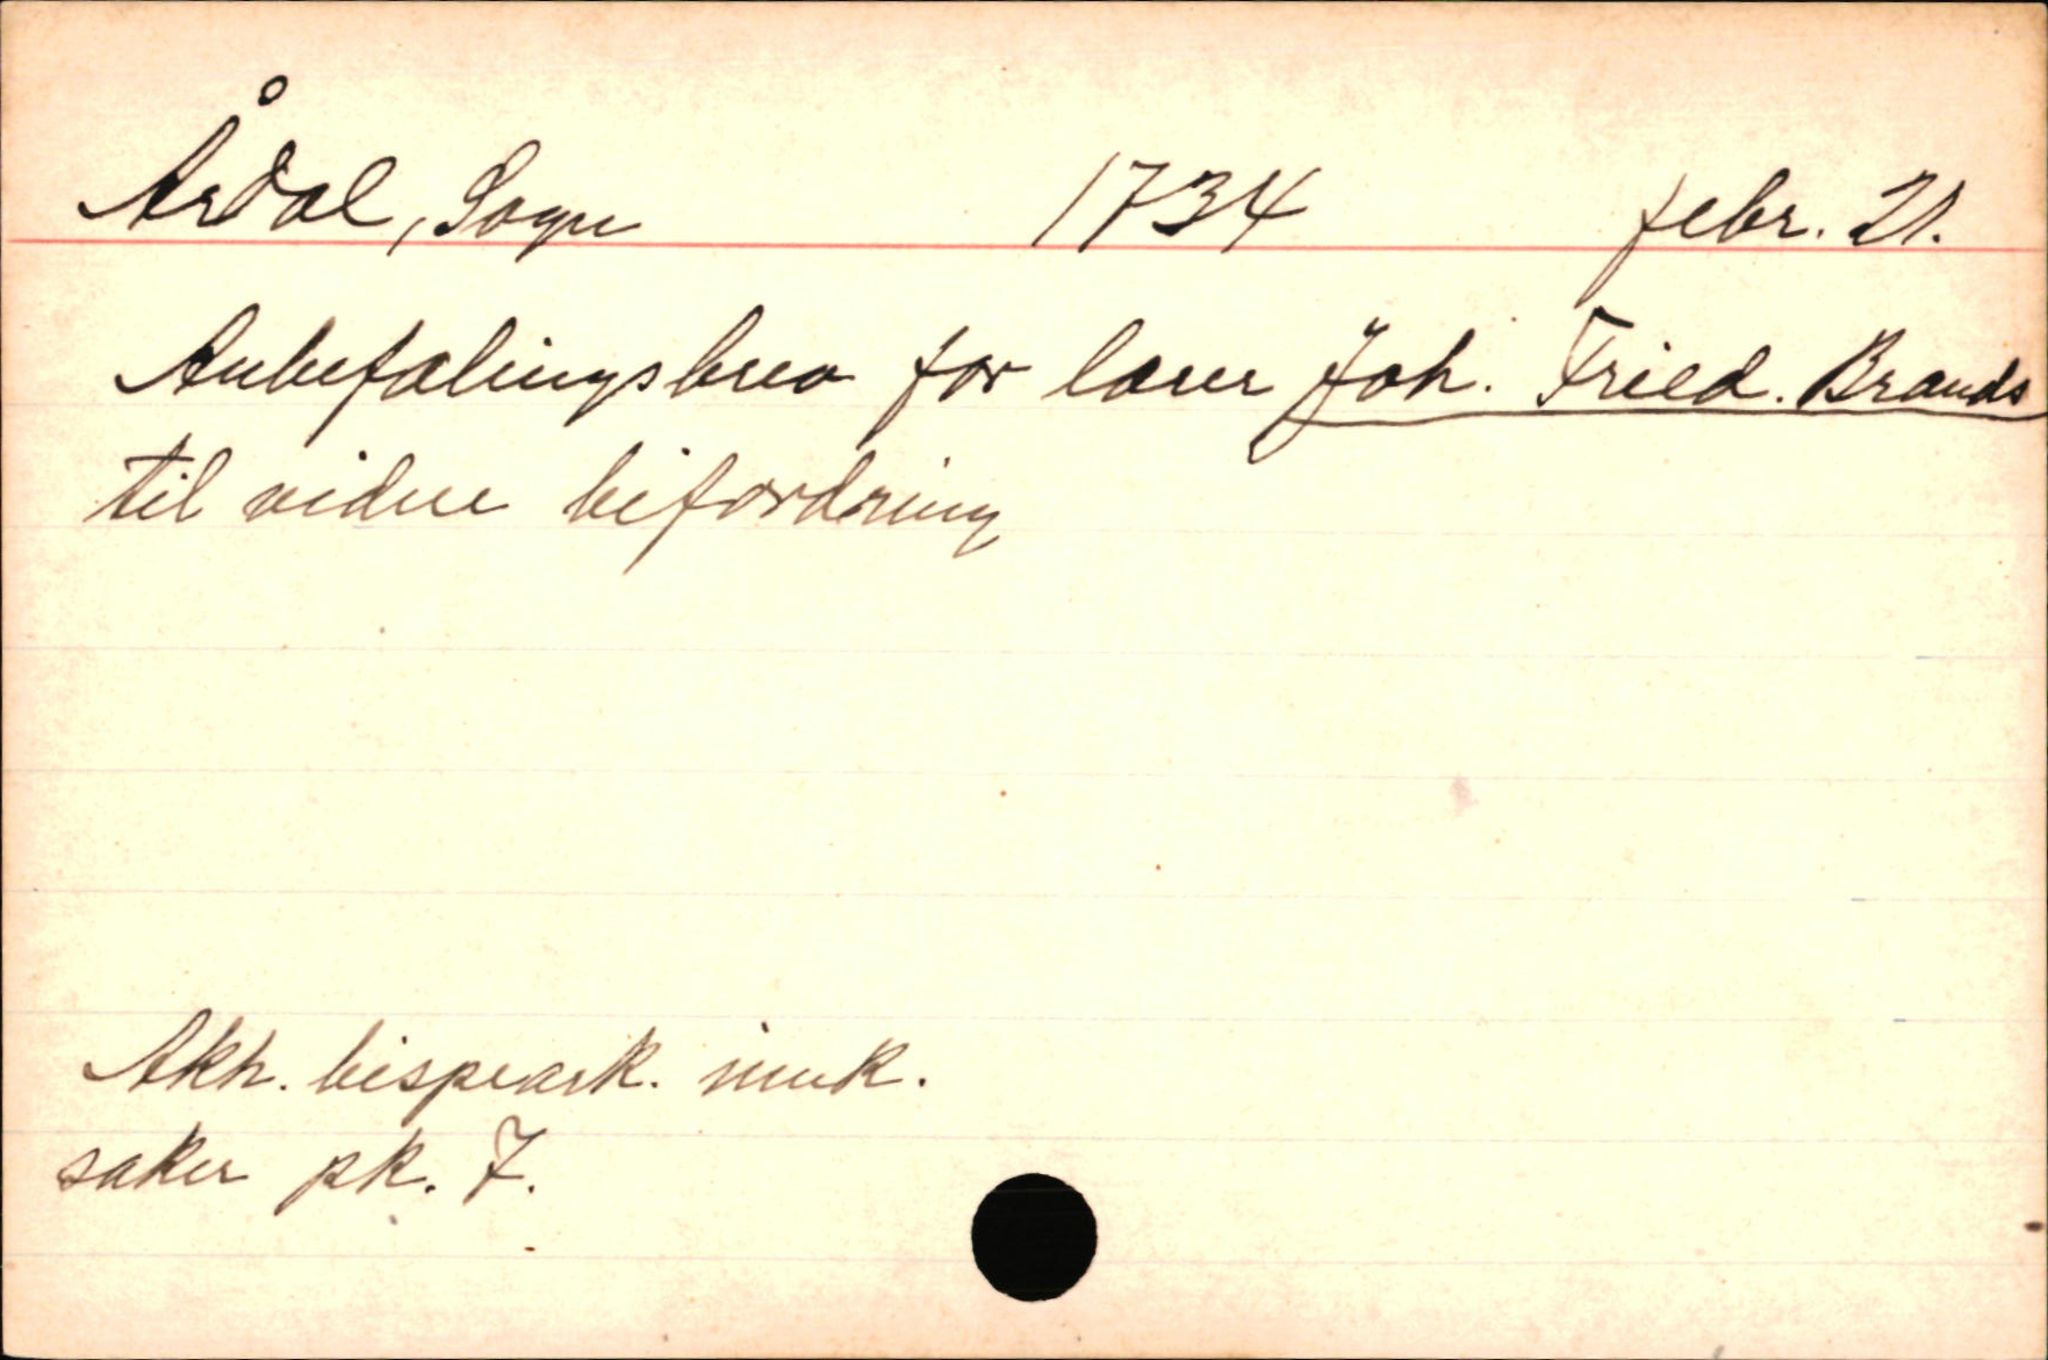 Årdal, Sogn 1734 febr. 21.
Anbefalingsbrev for lærer Joh. Fried. Brands
til videre befordring
Akh. bispeark. innk.
saker pk. 7.